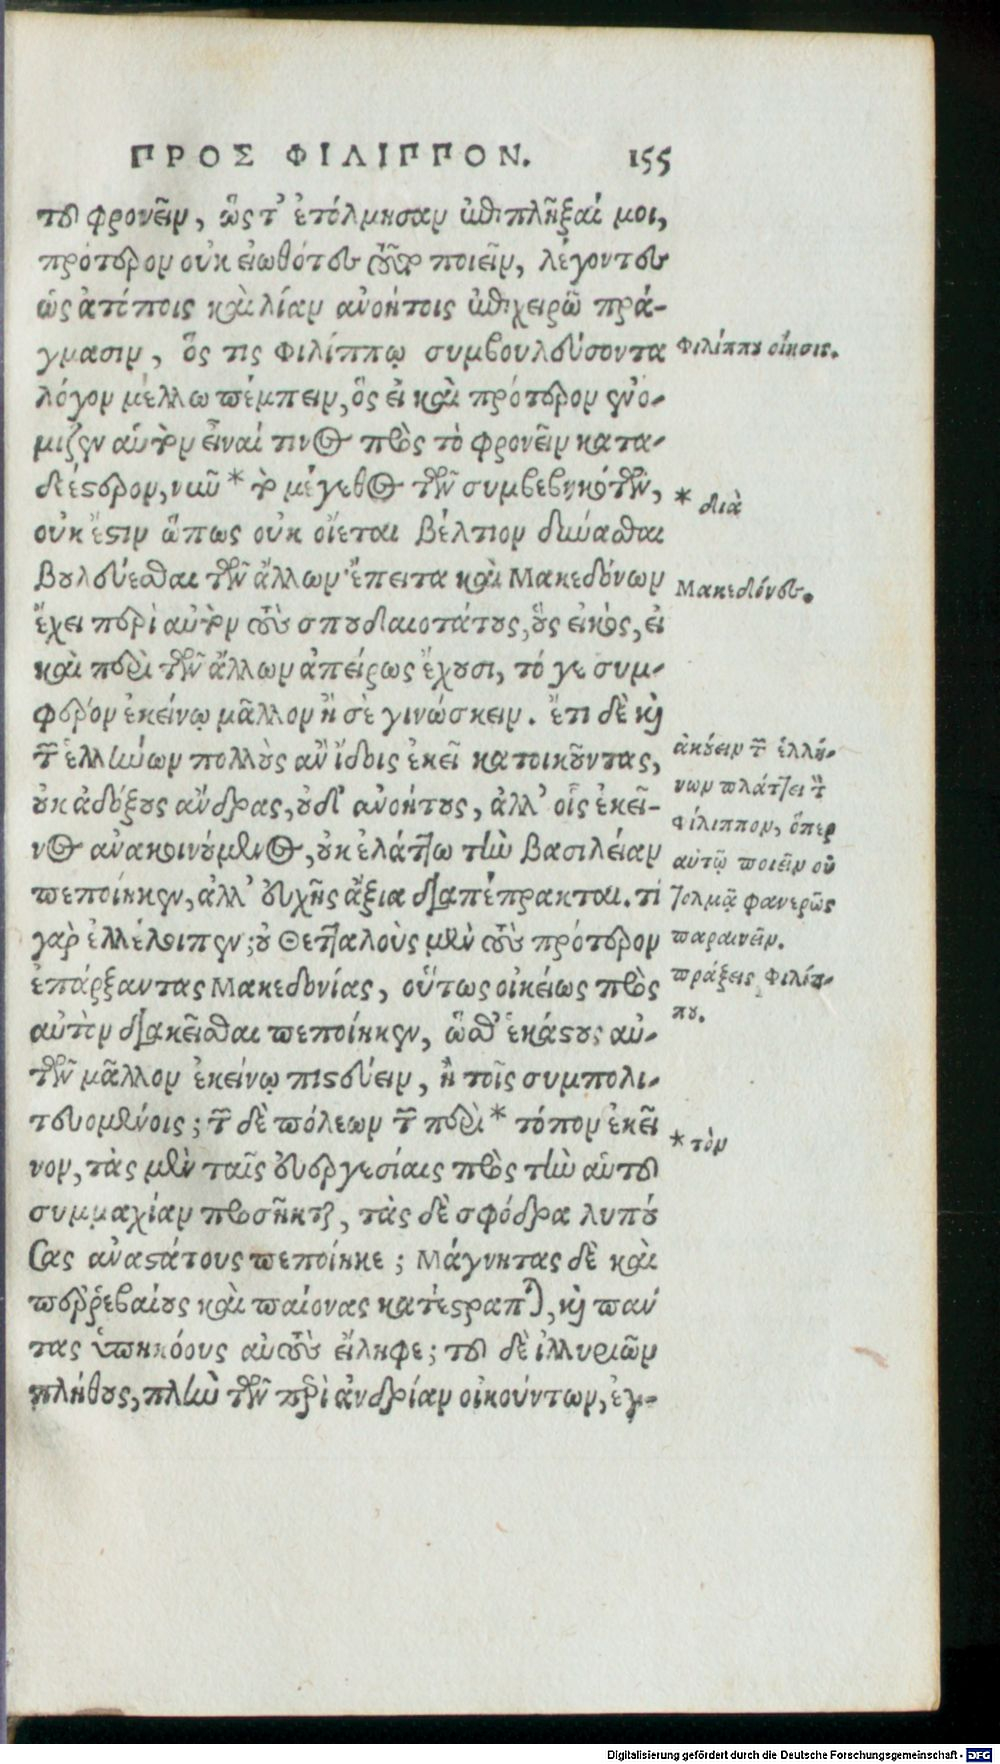 ΠΡΟΣ ΦΙΛΙΠΠΟΝ. 155
του φρονεῖν, ὥς τ' ἐτόλμησαν ἐπιπλῆξαί μοι,
πρότερον οὐκ εἰωθότες τοῦτο ποιεῖν, λέγοντες
ὡς ἀτόποις καὶ λίαν ἀνοήτοις ἐπιχειρῶ πρά-
γμασιν, ὅς τις Φιλίππῳ συμβουλεύσοντα
λόγον μέλλω πέμπειν, ὃς εἰ καὶ πρότερον ἐνό-
μιζεν αὑτὸν εἶναί τινος πρὸς τὸ φρονεῖν κατα-
δεέστερον, νῦν * τὸ μέγεθος τῶν συμβεβηκότων,
οὐκ ἔστιν ὅπως οὐκ οἴεται βέλτιον δύνασθαι
βουλεύεσθαι τῶν ἄλλων· ἔπειτα καὶ Μακεδόνων
ἔχει περὶ αὐτὸν τοὺς σπουδαιοτάτους, οὓς εἰκὸς, εἰ
καὶ περὶ τῶν ἄλλων ἀπείρως ἔχουσι, τό γε συμ-
φέρον ἐκείνῳ μᾶλλον ἢ σὲ γινώσκειν. ἔτι δὲ καὶ
τῶν ἑλλήνων πολλοὺς ἂν ἴδοις ἐκεῖ κατοικοῦντας,
οὐκ ἀδόξους ἄνδρας, οὐδ' ἀνοήτους, ἀλλ' οἷς ἐκεῖ-
νος ἀνακοινούμενος, οὐκ ἐλάττω τὴν βασιλείαν
πεποίηκεν, ἀλλ' εὐχῆς ἄξια διαπέπρακται. τί
γὰρ ἐλλέλοιπεν; οὐ Θετταλοὺς μὲν τοὺς πρότερον
ἐπάρξαντας Μακεδονίας, οὕτως οἰκείως πρὸς
αὐτὸν διακεῖσθαι πεποίηκεν, ὥσθ' ἑκάστους αὐ-
τῶν μᾶλλον ἐκείνῳ πιστεύειν, ἢ τοῖς συμπολι-
τευομένοις; τῶν δὲ πόλεων τῶν περὶ * τόπον ἐκεῖ
νον, τὰς μὲν ταῖς εὐεργεσίαις πρὸς τὴν αὑτοῦ
συμμαχίαν προσῆκται, τὰς δὲ σφόδρα λυπού
σας ἀναστάτους πεποίηκε; Μάγνητας δὲ καὶ
περῥεβαίους καὶ παίονας κατέστραπται, καὶ παν
τας ὑπηκόους αὐτοὺς εἴληφε; τοῦ δὲ ἰλλυριῶν
πλήθους, πλὴν τῶν περὶ ἀνδρίαν οἰκούντων, ἐγ-
Φιλίππου οἴησις.
* διὰ
Μακεδόνες.
ἀκούειν τῶν ἑλλή-
νων πλάττει τὸν
Φίλιππον, ὅπερ
αὐτῷ ποιεῖν οὐ
τολμᾷ φανερῶς
παραινεῖν.
πράξεις Φιλίπ-
που.
* τὸν
Digitalisierung gefördert durch die Deutsche Forschungsgemeinschaft - DFG